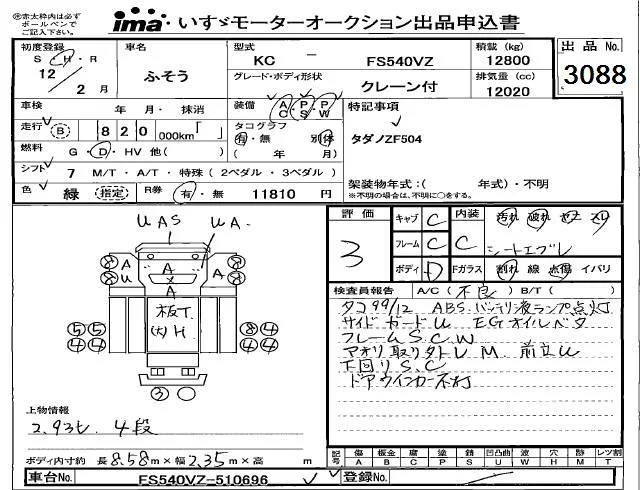 ※赤太枠内は必ず
ボールペンで
ご記入下さい。
ima いすゞモーターオークション出品申込書
初度登録 S・H・R 12/2月
車名 ふそう
型式 KC － FS540VZ
グレード・ボディ形状 クレーン付
積載 (kg) 12800
排気量 (cc) 12020
出品 No. 3088
車検 年 月・ 抹消
装備 A C P S P W
特記事項
走行 B 820 000km「 」
タコグラフ 有・無 別体
( 年 月)
タダノZF504
燃料 G・D・HV 他( )
シフト 7 M/T・A/T・特殊(2ペダル・3ペダル)
架装物年式:( 年式)・不明
※不明の場合は、不明に○をする。
色 緑 (指定) R券 有・無 11810 円
評価 3
キャブ C 内装 汚れ 破れ
フレーム C C シートエグレ
ボディ D Fガラス 割れ 線 点傷 イバリ
検査員報告 A/C (不良) B/T ( )
タコ99/12 ABS.バッテリ液ランプ点灯
サイドガードU EGオイルベタ
フレームS.C.W
アオリ取り外しU M. 前立U
下回りS.C
ドアウインカー不灯
UAS UA.
A U A A A U
板T.
(大)H
5 5 8 4
4 4 4 4
3
上物情報
2.93t. 4段
ボディ内寸約 長 8.58 m×幅 2.35 m×高 m
記号 傷 板金 腐 塗 錆 凹凸曲 波 穴 跡 レツ割
A B C P S U W H M T
車台No. FS540VZ-510696
登録No.